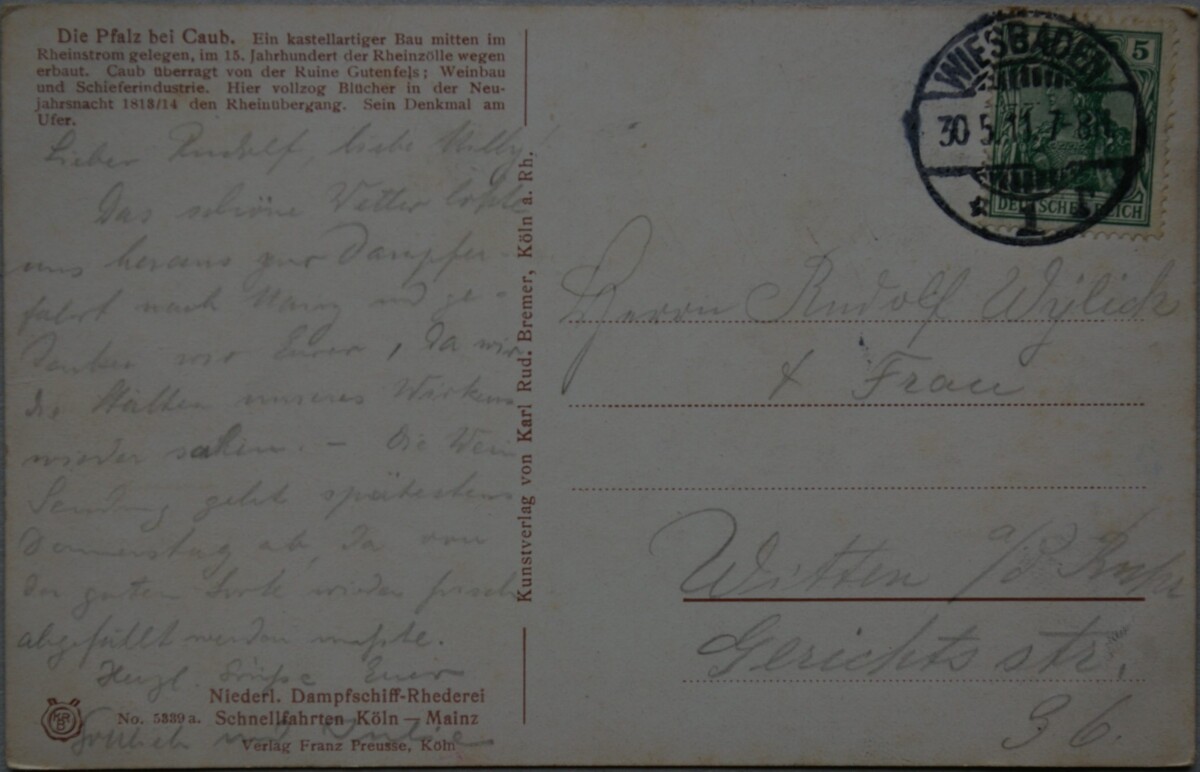 Die Pfalz bei Caub. Ein kastellartiger Bau mitten im
Rheinstrom gelegen, im 15. Jahrhundert der Rheinzölle wegen
erbaut. Caub überragt von der Ruine Gutenfels; Weinbau
und Schieferindustrie. Hier vollzog Blücher in der Neu-
jahrsnacht 1813/14 den Rheinübergang. Sein Denkmal am
Ufer.
Lieber Rudolf, liebe
Das schöne Wetter lockte
uns heraus zur Dampfer-
fahrt nach und ge-
denken wir Eurer, da wir
die Stätten unseres Wirkens
wieder sahen. - Die Wein
Sendung geht spätestens
Donnerstag ab, da von
der guten Sorte wieder frisch
abgefüllt werden mußte.
Herzl. Grüße Euer
und
Niederl. Dampfschiff-Rhederei
No. 5339 a. Schnellfahrten Köln – Mainz
Verlag Franz Preusse, Köln
Kunstverlag von Karl Rud. Bremer, Köln a. Rh.
WIESBADEN
30 5.11.7-8N
* 1 i
5
DEUTSCHES REICH
Herrn Rudolf Wylich
& Frau
Witten a/d. Ruhr
Gerichtsstr.
36.